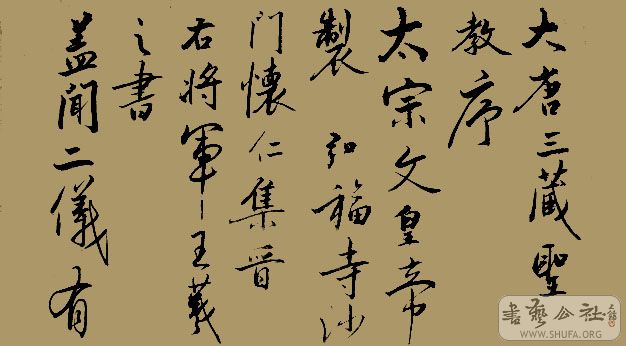 大唐三藏聖
教序
太宗文皇帝
製 弘福寺沙
門懷仁集晉
右將軍王羲
之書
蓋聞二儀有
書藝公社
WWW.SHUFA.ORG